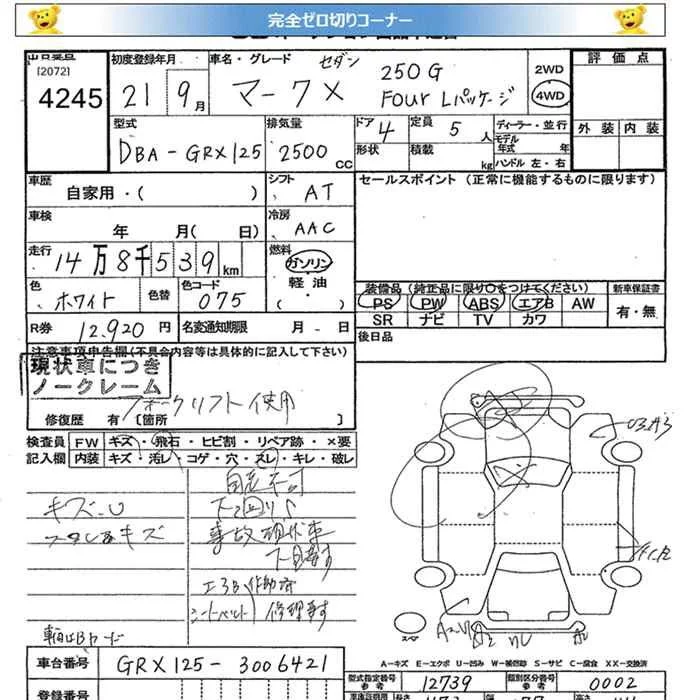 完全ゼロ切りコーナー
[2072]
4245
初度登録年月
21 9月
車名・グレード セダン
マークX 250G
Four Lパッケージ
2WD
4WD
評価点
外装 内装
型式
DBA-GRX125
排気量
2500cc
ドア 4
形状
定員 5人
積載 kg
ディーラー・並行
モデル年式 年
ハンドル 左・右
車歴
自家用・( )
シフト
AT
セールスポイント (正常に機能するものに限ります)
車検
年 月( 日)
冷房
AAC
走行
14万8千539km
燃料
ガソリン
軽油
( )
色
ホワイト
色替
色コード
075
装備品 (純正品に限り○をつけてください)
PS PW ABS エアB AW
SR ナビ TV カワ
新車保証書
有・無
R券 12,920円
名変通知期限 月 日
後日品
注意事項申告欄(不具合内容等は具体的に記入して下さい)
現状車につき
ノークレーム
フォークリフト使用
修復歴 有〔箇所 〕
検査員 FW キズ・飛石・ヒビ割・リペア跡・×要
記入欄 内装 キズ・汚レ・コゲ・穴・スレ・キレ・破レ
自走不可
キズ、U
下回りS
事故現状車
エアB作動済
シートベルト
A2
車台番号 GRX125-3006421
A-キズ E-エクボ U-凹み W-補修跡 S-サビ C-腐食 XX-交換済
型式指定番号 参考 12739
類別区分番号 参考 0002
登録番号